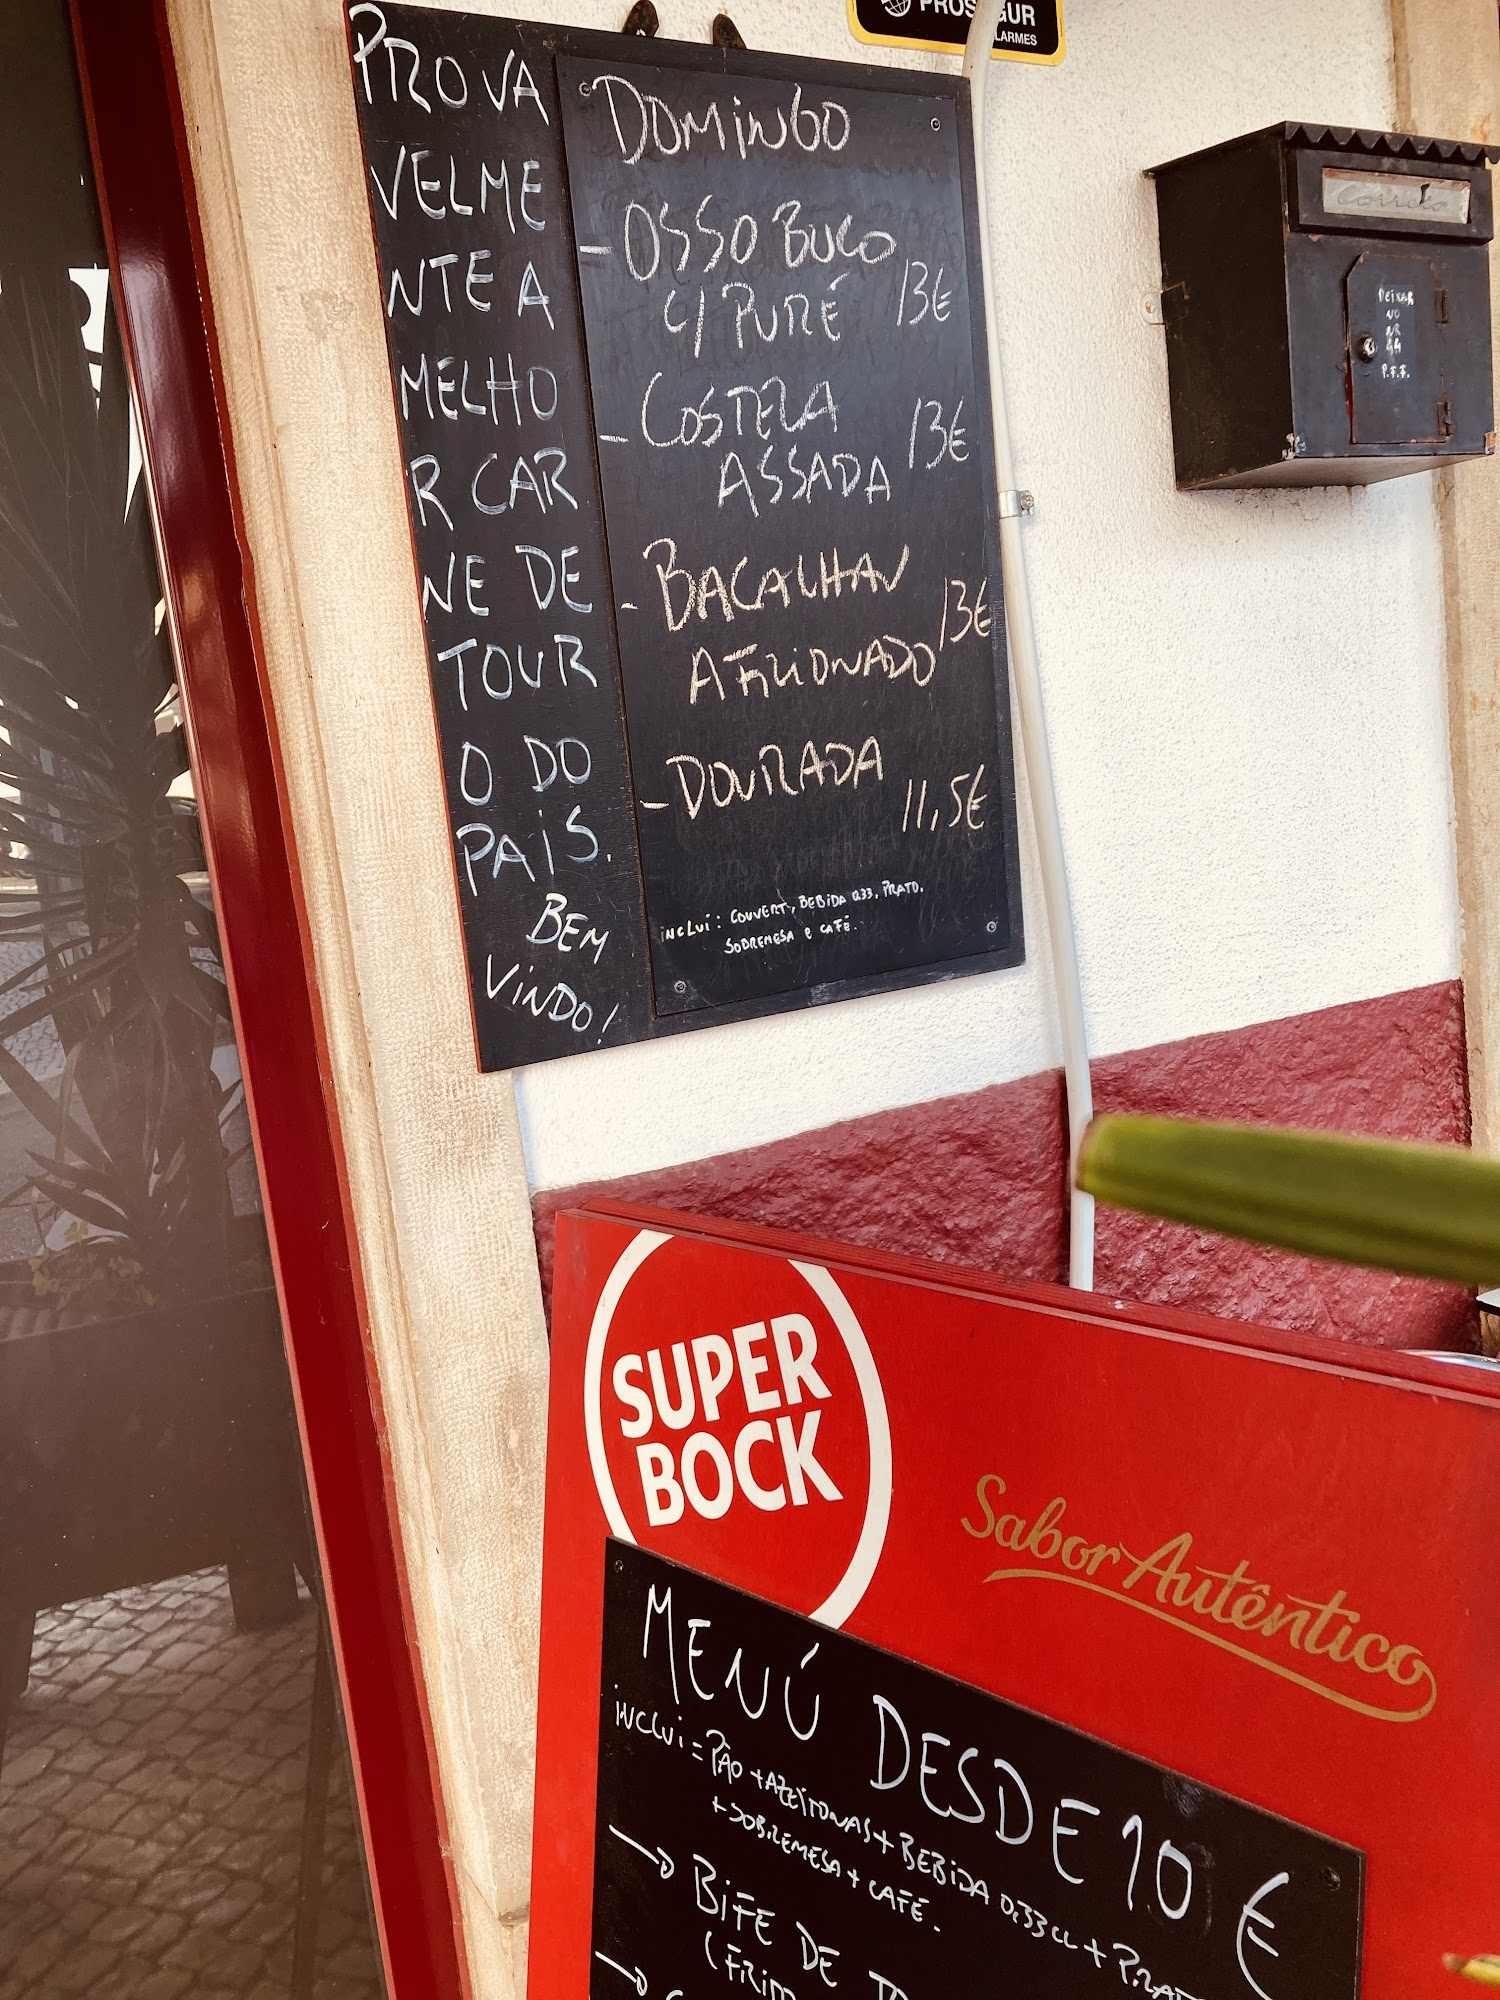 PROSEGUR
ALARMES
PROVA
VELME
NTE A
MELHO
R CAR
NE DE
TOUR
O DO
PAIS.
BEM
VINDO!
DOMINGO
- OSSO BUCO
C/ PURÉ 13€
- COSTELA
ASSADA 13€
- BACALHAU
AFICIONADO 13€
- DOURADA
11,5€
INCLUI: COUVERT, BEBIDA 0.33, PRATO,
SOBREMESA e CAFÉ.
Correio
DEIXAR
NO
NR
44
P.F.F.
SUPER
BOCK
Sabor Autêntico
MENÚ DESDE 10 €
INCLUI = PÃO + AZEITONAS + BEBIDA 0.33CL + PRAT
+ SOBREMESA + CAFÉ.
→ BIFE DE